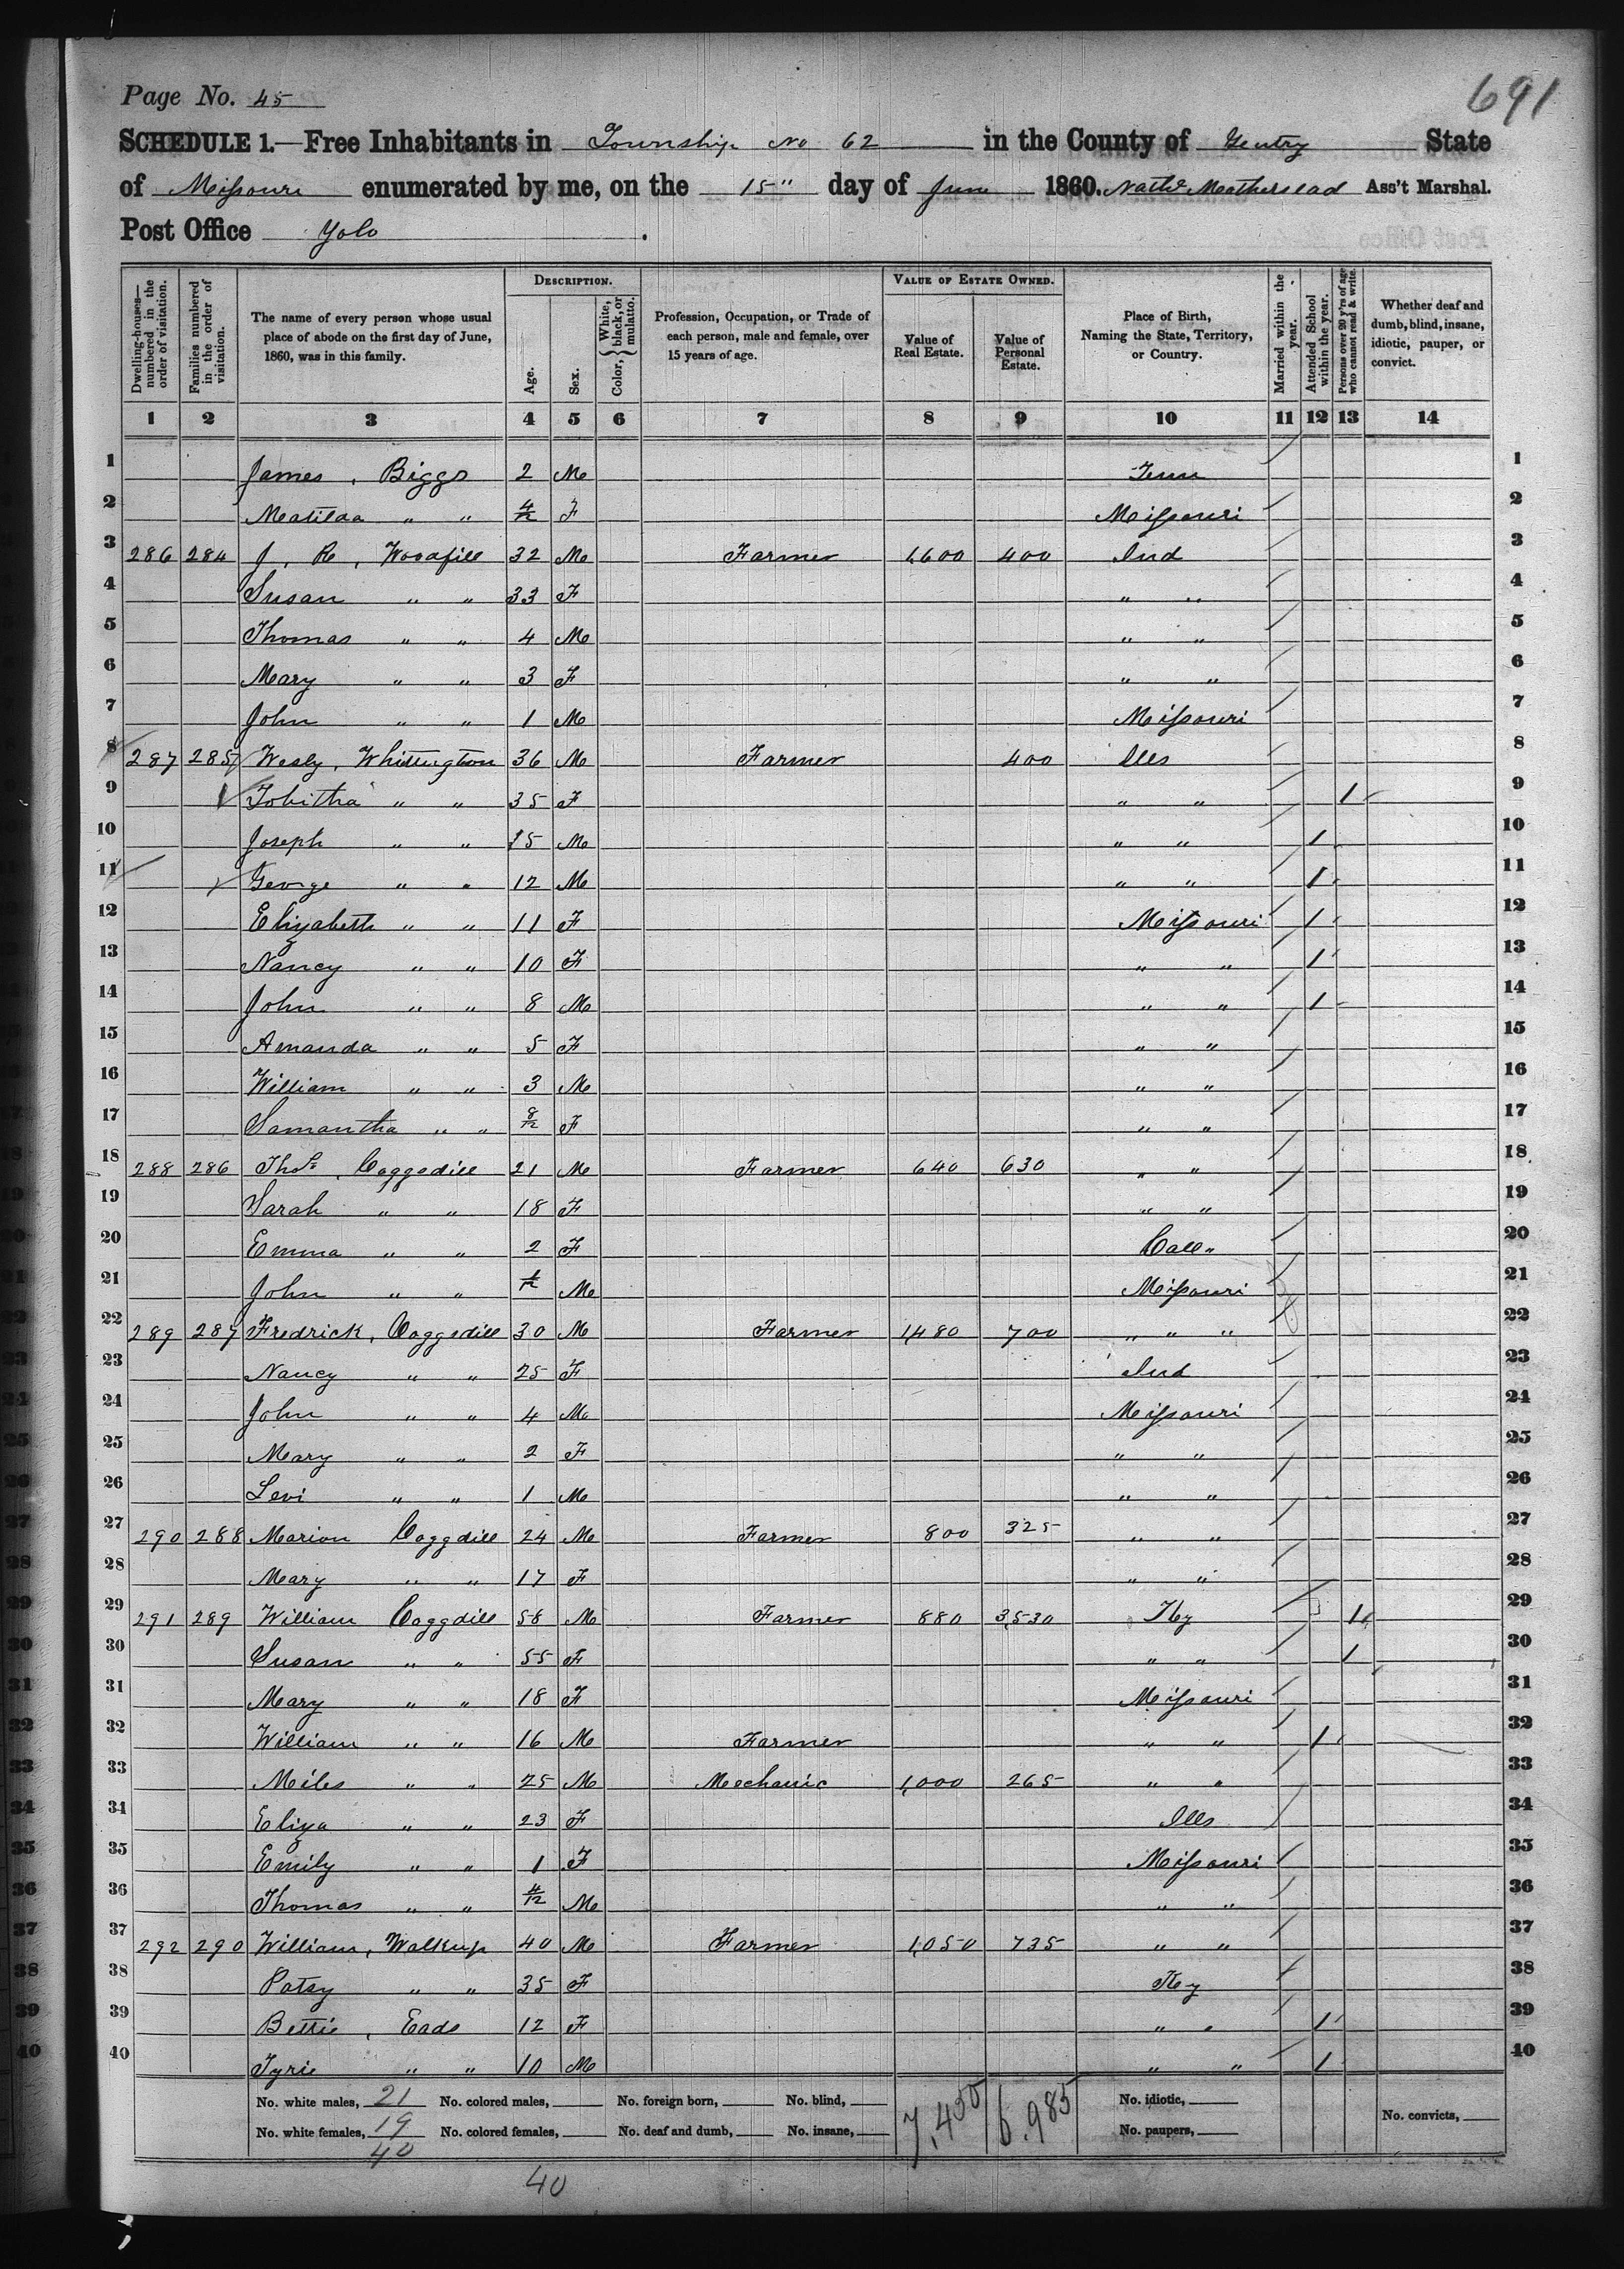 Page No. 45
691
SCHEDULE 1.—Free Inhabitants in Township No 62 in the County of Gentry State
of Missouri enumerated by me, on the 15" day of June 1860. Ass't Marshal.
Post Office Yolo
Dwelling-houses—numbered in the order of visitation.
Families numbered in the order of visitation.
The name of every person whose usual place of abode on the first day of June, 1860, was in this family.
DESCRIPTION.
Age.
Sex.
Color, { White, black, or mulatto.
Profession, Occupation, or Trade of each person, male and female, over 15 years of age.
VALUE OF ESTATE OWNED.
Value of Real Estate.
Value of Personal Estate.
Place of Birth, Naming the State, Territory, or Country.
Married within the year.
Attended School within the year.
Persons over 20 y'rs of age who cannot read & write.
Whether deaf and dumb, blind, insane, idiotic, pauper, or convict.
1 2 3 4 5 6 7 8 9 10 11 12 13 14
1 James, Biggs 2 M Tenn / 1
2 Matilda " " 4/12 F Missouri / 2
3 286 284 J, R, Woodfill 32 M Farmer 1,600 400 Ind / 3
4 Susan " " 33 F " " / 4
5 Thomas " " 4 M " " / 5
6 Mary " " 3 F " " / 6
7 John " " 1 M Missouri / 7
8 287 285 Wesly, Whittington 36 M Farmer 400 Ills / 8
9 Tobitha " " 35 F " " / 1 9
10 Joseph " " 15 M " " / 1 10
11 George " " 12 M " " / 1 11
12 Elizabeth " " 11 F Missouri / 1 12
13 Nancy " " 10 F " " / 1 13
14 John " " 8 M " " / 1 14
15 Amanda " " 5 F " " / 15
16 William " " 3 M " " / 16
17 Samantha " " 8/12 F " " / 17
18 288 286 Thos, Coggsdill 21 M Farmer 640 630 " " / 18
19 Sarah " " 18 F " " / 19
20 Emma " " 2 F Call" / 20
21 John " " 1/12 M Missouri 21
22 289 287 Fredrick, Coggsdill 30 M Farmer 1,480 700 " " " 22
23 Nancy " " 25 F Ind / 23
24 John " " 4 M Missouri / 24
25 Mary " " 2 F " " / 25
26 Levi " " 1 M " " / 26
27 290 288 Marion Coggdill 24 M Farmer 800 325 " " / 27
28 Mary " " 17 F " " / 28
29 291 289 William Coggdill 58 M Farmer 880 3,530 Ky / 1 29
30 Susan " " 55 F " " / 1 30
31 Mary " " 18 F Missouri / 31
32 William " " 16 M Farmer " " / 1 32
33 Miles " " 25 M Mechanic 1,000 265 " " / 33
34 Eliza " " 23 F Ills / 34
35 Emily " " 1 F Missouri / 35
36 Thomas " " 4/12 M " " / 36
37 292 290 William, Walkup 40 M Farmer 1,050 735 " " / 37
38 Patsy " " 35 F Ky / 38
39 Bettie, Eads 12 F " " / 1 39
40 Tyrie " " 10 M " " / 1 40
No. white males, 21 No. colored males, No. foreign born, No. blind, 7,450 6,985 No. idiotic,
No. white females, 19 No. colored females, No. deaf and dumb, No. insane, No. paupers, No. convicts,
40
40